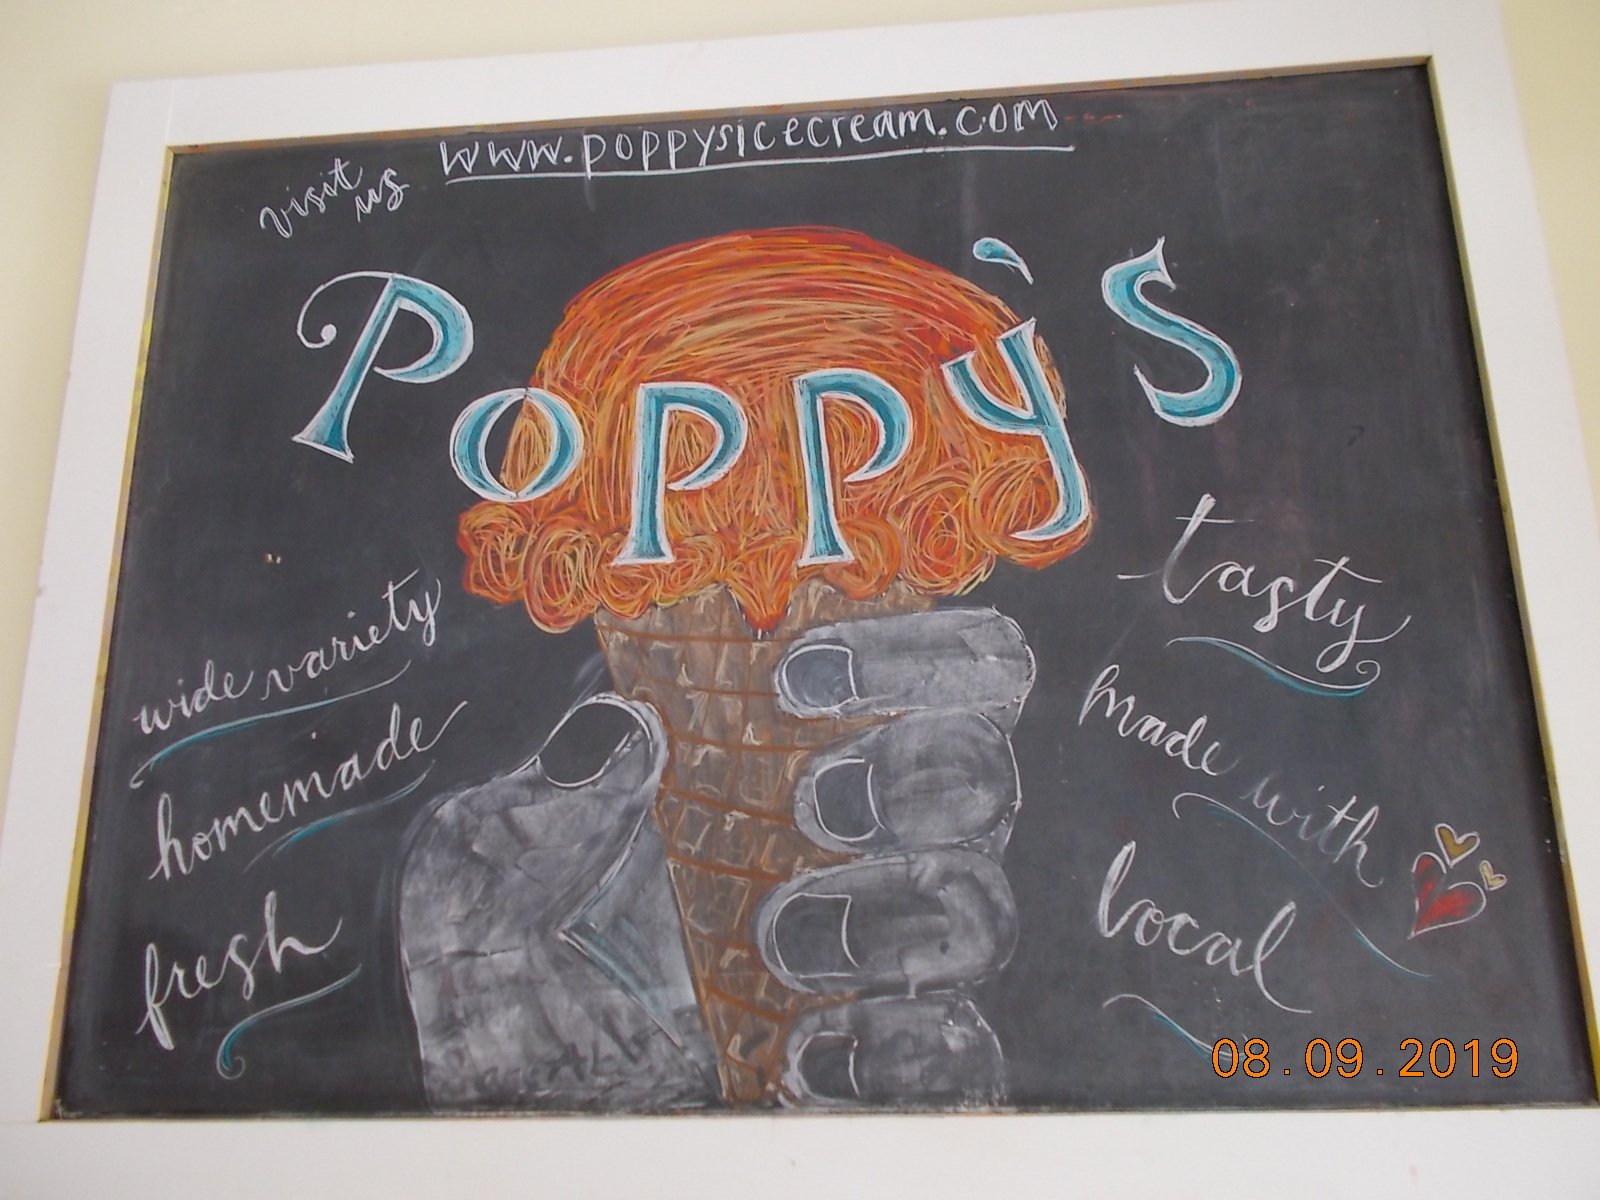 visit us www.poppysicecream.com
Poppy's
wide variety
homemade
fresh
tasty
made with
local
08.09.2019